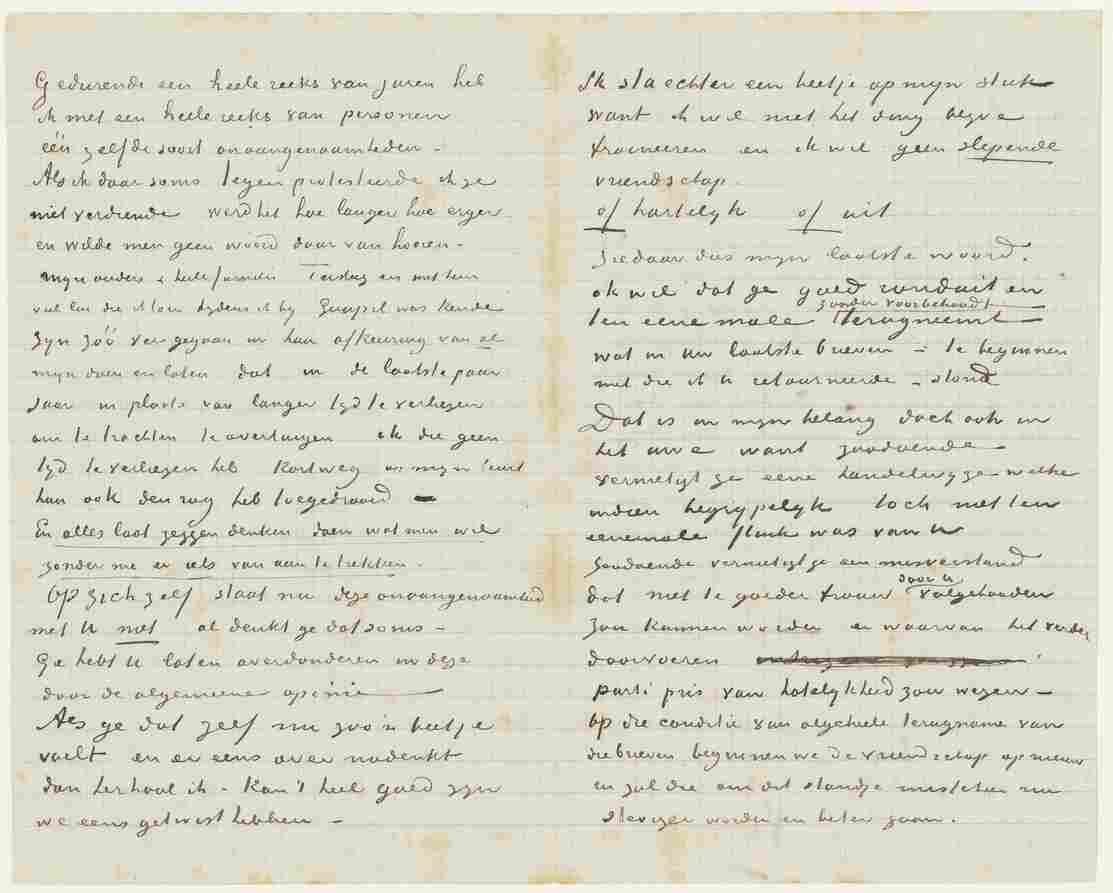 Gedurende een heele reeks van jaren heb
ik met een heele reeks van personen
één zelfde soort onaangenaamheden –
Als ik daar soms tegen protesteerde ik ze
niet verdiende werd het hoe langer hoe erger
en wilde men geen woord daar van hooren –
mijn ouders & heele familie Tersteeg en met hem
veel lui die ik toen tydens ik by Goupil was kende
zyn zóó ver gegaan in hun afkeuring van al
myn doen en laten dat in de laatste paar
jaar in plaats van langer tyd te verliezen
om te trachten te overtuigen ik die geen
tyd te verliezen heb kortweg op myn beurt
hun ook den rug heb toegedraaid –
En alles laat zeggen denken doen wat men wil
zonder me er iets van aan te trekken.
Op zich zelf staat nu deze onaangenaamheid
met U niet al denkt ge dat soms –
Ge hebt U laten overdonderen in deze
door de algemeene opinie –
Als ge dat zelf nu zoo'n beetje
voelt en er eens over nadenkt
dan herhaal ik – Kan 't heel goed zyn
we eens getwist hebben –
Ik sta echter een beetje op myn stuk
want ik wil niet het ding
traineeren en ik wil geen slepende
vriendschap.
of hartelyk of uit
Ziedaar dus myn laatste woord.
ik wil dat ge goed ronduit en
zonder voorbehoud
ten eene male terugneemt –
wat in uw laatste brieven – te beginnen
met die ik u retourneerde – stond
Dat is in myn belang doch ook in
het uwe want zoodoende –
vernietigt ge eene handelwyze welke
indien begrypelyk toch niet ten
eenemale flink was van U
Zoodoende vernietigt ge een misverstand
door U
dat niet te goeder trouw volgehouden
zou kunnen worden en waarvan het verder
doorvoeren
parti pris van hatelykheid zou wezen –
Op die conditie van algeheele terugname van
die brieven beginnen we de vriendschap op nieuw
en zal die om dit standje misschien nu
steviger worden en beter gaan.